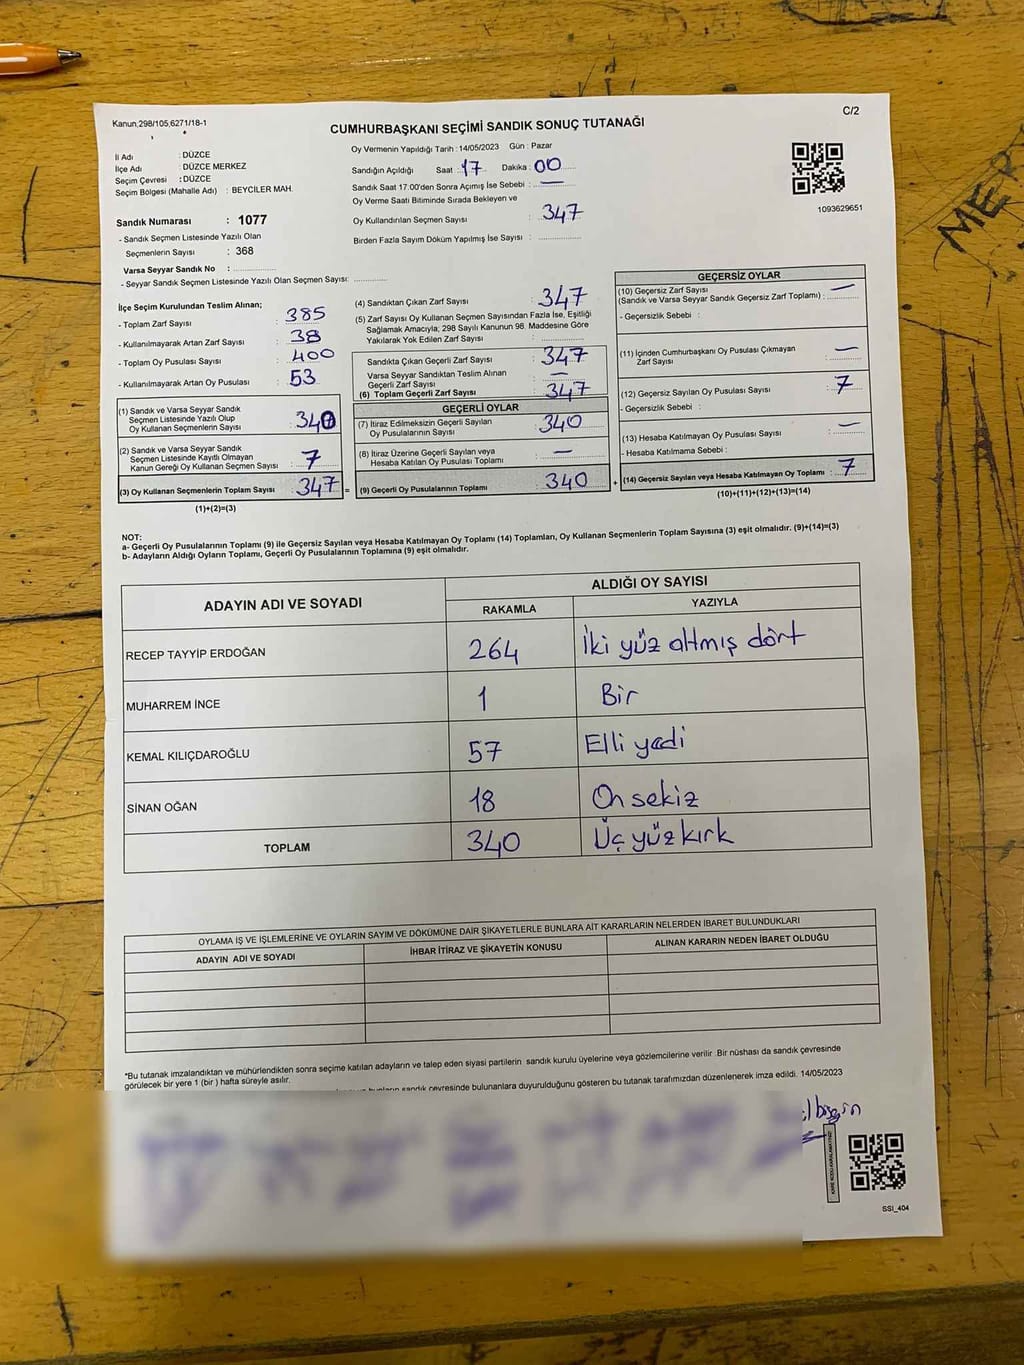 Kanun,298/105,6271/18-1
C/2
CUMHURBAŞKANI SEÇİMİ SANDIK SONUÇ TUTANAĞI
İl Adı : DÜZCE
İlçe Adı : DÜZCE MERKEZ
Seçim Çevresi : DÜZCE
Seçim Bölgesi (Mahalle Adı) : BEYCİLER MAH.
Sandık Numarası : 1077
- Sandık Seçmen Listesinde Yazılı Olan
Seçmenlerin Sayısı : 368
Varsa Seyyar Sandık No : ..............
- Seyyar Sandık Seçmen Listesinde Yazılı Olan Seçmen Sayısı: ............
Oy Vermenin Yapıldığı Tarih : 14/05/2023 Gün : Pazar
Sandığın Açıldığı Saat : 17 Dakika : 00
Sandık Saat 17.00'den Sonra Açımış İse Sebebi : —
Oy Verme Saati Bitiminde Sırada Bekleyen ve
Oy Kullandırılan Seçmen Sayısı : 347
Birden Fazla Sayım Döküm Yapılmış İse Sayısı : ..............
1093629651
İlçe Seçim Kurulundan Teslim Alınan;
- Toplam Zarf Sayısı : 385
- Kullanılmayarak Artan Zarf Sayısı : 38
- Toplam Oy Pusulası Sayısı : 400
- Kullanılmayarak Artan Oy Pusulası : 53
(1) Sandık ve Varsa Seyyar Sandık
Seçmen Listesinde Yazılı Olup
Oy Kullanan Seçmenlerin Sayısı : 340
(2) Sandık ve Varsa Seyyar Sandık
Seçmen Listesinde Kayıtlı Olmayan
Kanun Gereği Oy Kullanan Seçmen Sayısı : 7
(3) Oy Kullanan Seçmenlerin Toplam Sayısı : 347 =
(1)+(2)=(3)
(4) Sandıktan Çıkan Zarf Sayısı : 347
(5) Zarf Sayısı Oy Kullanan Seçmen Sayısından Fazla İse, Eşitliği
Sağlamak Amacıyla; 298 Sayılı Kanunun 98. Maddesine Göre
Yakılarak Yok Edilen Zarf Sayısı : ..............
Sandıkta Çıkan Geçerli Zarf Sayısı : 347
Varsa Seyyar Sandıktan Teslim Alınan
Geçerli Zarf Sayısı : —
(6) Toplam Geçerli Zarf Sayısı : 347
GEÇERLİ OYLAR
(7) İtiraz Edilmeksizin Geçerli Sayılan
Oy Pusulalarının Sayısı : 340
(8) İtiraz Üzerine Geçerli Sayılan veya
Hesaba Katılan Oy Pusulası Toplamı : —
(9) Geçerli Oy Pusulalarının Toplamı : 340 +
GEÇERSİZ OYLAR
(10) Geçersiz Zarf Sayısı
(Sandık ve Varsa Seyyar Sandık Geçersiz Zarf Toplamı) : —
- Geçersizlik Sebebi :
(11) İçinden Cumhurbaşkanı Oy Pusulası Çıkmayan
Zarf Sayısı : —
(12) Geçersiz Sayılan Oy Pusulası Sayısı : 7
- Geçersizlik Sebebi :
(13) Hesaba Katılmayan Oy Pusulası Sayısı : —
- Hesaba Katılmama Sebebi :
(14) Geçersiz Sayılan veya Hesaba Katılmayan Oy Toplamı : 7
(10)+(11)+(12)+(13)=(14)
NOT:
a- Geçerli Oy Pusulalarının Toplamı (9) ile Geçersiz Sayılan veya Hesaba Katılmayan Oy Toplamı (14) Toplamları, Oy Kullanan Seçmenlerin Toplam Sayısına (3) eşit olmalıdır. (9)+(14)=(3)
b- Adayların Aldığı Oyların Toplamı, Geçerli Oy Pusulalarının Toplamına (9) eşit olmalıdır.
ADAYIN ADI VE SOYADI ALDIĞI OY SAYISI
RAKAMLA YAZIYLA
RECEP TAYYİP ERDOĞAN 264 İki yüz altmış dört
MUHARREM İNCE 1 Bir
KEMAL KILIÇDAROĞLU 57 Elli yedi
SİNAN OĞAN 18 On sekiz
TOPLAM 340 Üç yüz kırk
OYLAMA İŞ VE İŞLEMLERİNE VE OYLARIN SAYIM VE DÖKÜMÜNE DAİR ŞİKAYETLERLE BUNLARA AİT KARARLARIN NELERDEN İBARET BULUNDUKLARI
ADAYIN ADI VE SOYADI İHBAR İTİRAZ VE ŞİKAYETİN KONUSU ALINAN KARARIN NEDEN İBARET OLDUĞU
*Bu tutanak imzalandıktan ve mühürlendikten sonra seçime katılan adayların ve talep eden siyasi partilerin sandık kurulu üyelerine veya gözlemcilerine verilir .Bir nüshası da sandık çevresinde
görülecek bir yere 1 (bir ) hafta süreyle asılır.
sandık çevresinde bulunanlara duyurulduğunu gösteren bu tutanak tarafımızdan düzenlenerek imza edildi. 14/05/2023
SSI_404